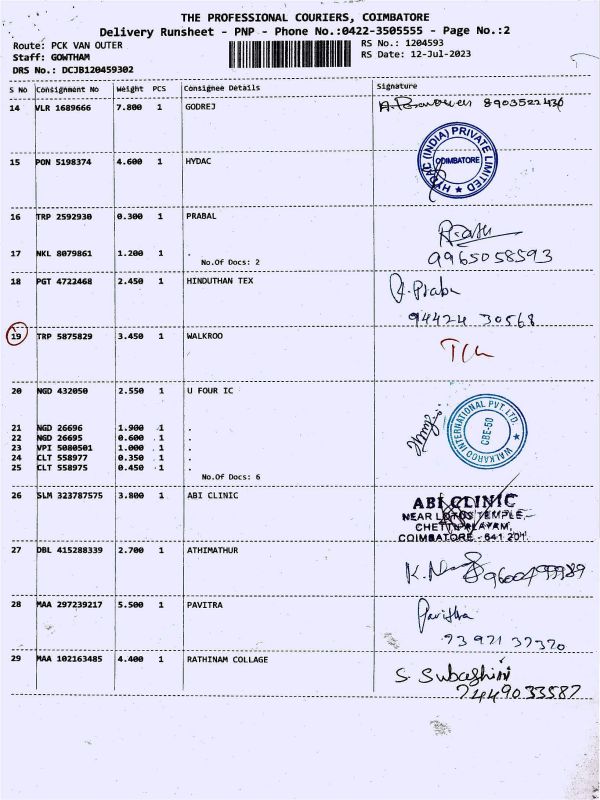 THE PROFESSIONAL COURIERS, COIMBATORE
Delivery Runsheet - PNP - Phone No.:0422-3505555 - Page No.:2
Route: PCK VAN OUTER RS No.: 1204593
Staff: GOWTHAM RS Date: 12-Jul-2023
DRS No.: DCJB120459302
S No Consignment No Weight PCS Consignee Details Signature
14 VLR 1689666 7.800 1 GODREJ
15 PON 5198374 4.600 1 HYDAC
HYDAC (INDIA) PRIVATE LIMITED
COIMBATORE
16 TRP 2592930 0.300 1 PRABAL
17 NKL 8079861 1.200 1 .
No.Of Docs: 2 9965058593
18 PGT 4722468 2.450 1 HINDUTHAN TEX
94424 30568
19 TRP 5875829 3.450 1 WALKROO
20 NGD 432050 2.550 1 U FOUR IC
WALKAROO INTERNATIONAL PVT. LTD.
CBE-50
21 NGD 26696 1.900 1 .
22 NGD 26695 0.600 1 .
23 VPI 5080501 1.000 1 .
24 CLT 558977 0.350 1 .
25 CLT 558975 0.450 1 .
No.Of Docs: 6
26 SLM 323787575 3.800 1 ABI CLINIC
ABI CLINIC
NEAR LOTUS TEMPLE,
CHETTIPALAYAM,
COIMBATORE - 641 201
27 DBL 415288339 2.700 1 ATHIMATHUR
28 MAA 297239217 5.500 1 PAVITRA
Pavithra
29 MAA 102163485 4.400 1 RATHINAM COLLAGE
S. Subashini
7449033587